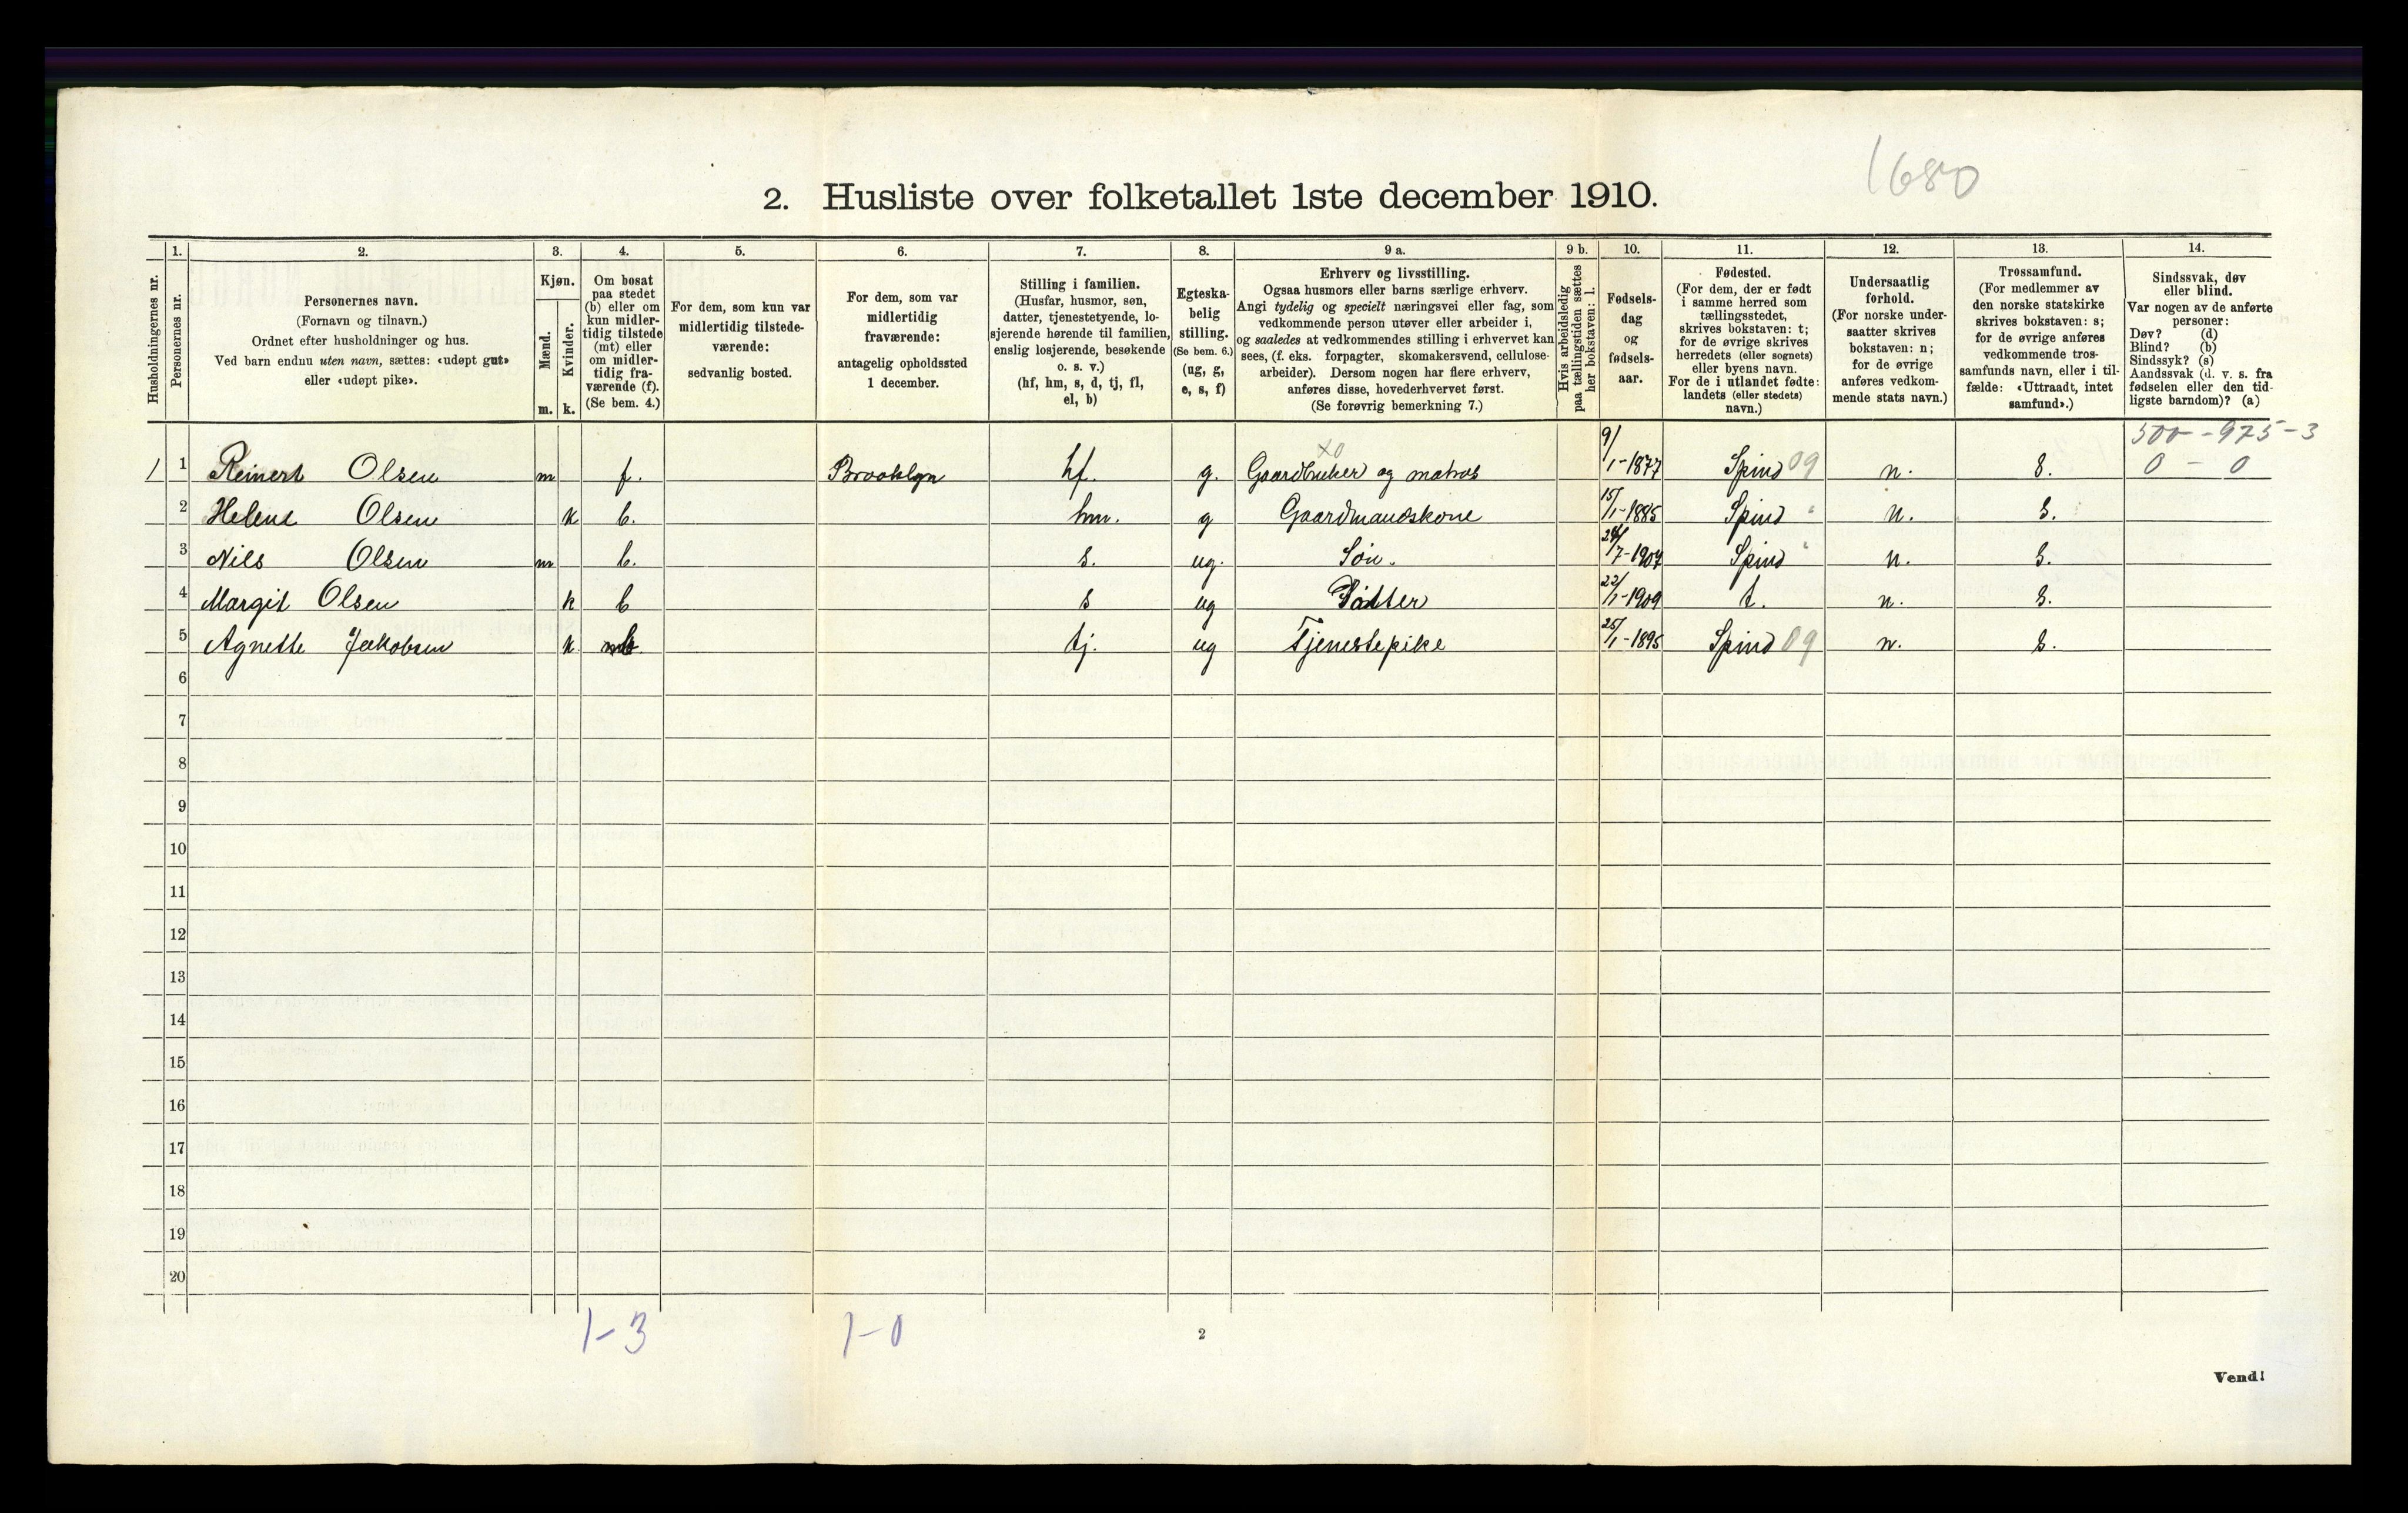 1680
2. Husliste over folketallet 1ste december 1910.
Husholdningernes nr.
1.
Personernes nr.
2.
Personernes navn.
(Fornavn og tilnavn.)
Ordnet efter husholdninger og hus.
Ved barn endnu uten navn, sættes: «udøpt gut»
eller «udøpt pike».
3.
Kjøn.
Mænd.
Kvinder.
m. k.
4.
Om bosat
paa stedet
(b) eller om
kun midler-
tidig tilstede
(mt) eller
om midler-
tidig fra-
værende (f).
(Se bem. 4.)
5.
For dem, som kun var
midlertidig tilstede-
værende:
sedvanlig bosted.
6.
For dem, som var
midlertidig
fraværende:
antagelig opholdssted
1 december.
7.
Stilling i familien.
(Husfar, husmor, søn,
datter, tjenestetyende, lo-
sjerende hørende til familien,
enslig losjerende, besøkende
o. s. v.)
(hf, hm, s, d, tj, fl,
el, b)
8.
Egteska-
belig
stilling.
(Se bem. 6.)
(ug, g,
e, s, f)
9 a.
Erhverv og livsstilling.
Ogsaa husmors eller barns særlige erhverv.
Angi tydelig og specielt næringsvei eller fag, som
vedkommende person utøver eller arbeider i,
og saaledes at vedkommendes stilling i erhvervet kan
sees, (f. eks. forpagter, skomakersvend, cellulose-
arbeider). Dersom nogen har flere erhverv,
anføres disse, hovederhvervet først.
(Se forøvrig bemerkning 7.)
9 b.
Hvis arbeidsledig
paa tællingstiden sættes
her bokstaven: l.
10.
Fødsels-
dag
og
fødsels-
aar.
11.
Fødested.
(For dem, der er født
i samme herred som
tællingsstedet,
skrives bokstaven: t;
for de øvrige skrives
herredets (eller sognets)
eller byens navn.
For de i utlandet fødte:
landets (eller stedets)
navn.)
12.
Undersaatlig
forhold.
(For norske under-
saatter skrives
bokstaven: n;
for de øvrige
anføres vedkom-
mende stats navn.)
13.
Trossamfund.
(For medlemmer av
den norske statskirke
skrives bokstaven: s;
for de øvrige anføres
vedkommende tros-
samfunds navn, eller i til-
fælde: «Uttraadt, intet
samfund».)
14.
Sindssvak, døv
eller blind.
Var nogen av de anførte
personer:
Døv? (d)
Blind? (b)
Sindssyk? (s)
Aandssvak (d. v. s. fra
fødselen eller den tid-
ligste barndom)? (a)
500 - 975 - 3
X0
1 1 Reinert Olsen m f. Brooklyn hf. g. Gaardbruker og matros 9/1-1877 Spind 09 n. S. 0 - 0
2 Helene Olsen k b. hm. g Gaardmandskone 15/1-1885 Spind " n. S.
3 Nils Olsen m b. s. ug. Søn. 24/7-1907 Spind " n. S.
4 Margit Olsen k b s ug Datter 22/1-1909 t. n. S.
5 Agnette Jakobsen k b tj. ug Tjenestepike 25/1-1895 Spind 09 n. S.
6
7
8
9
10
11
12
13
14
15
16
17
18
19
20
1-3 1-0
2
Vend!